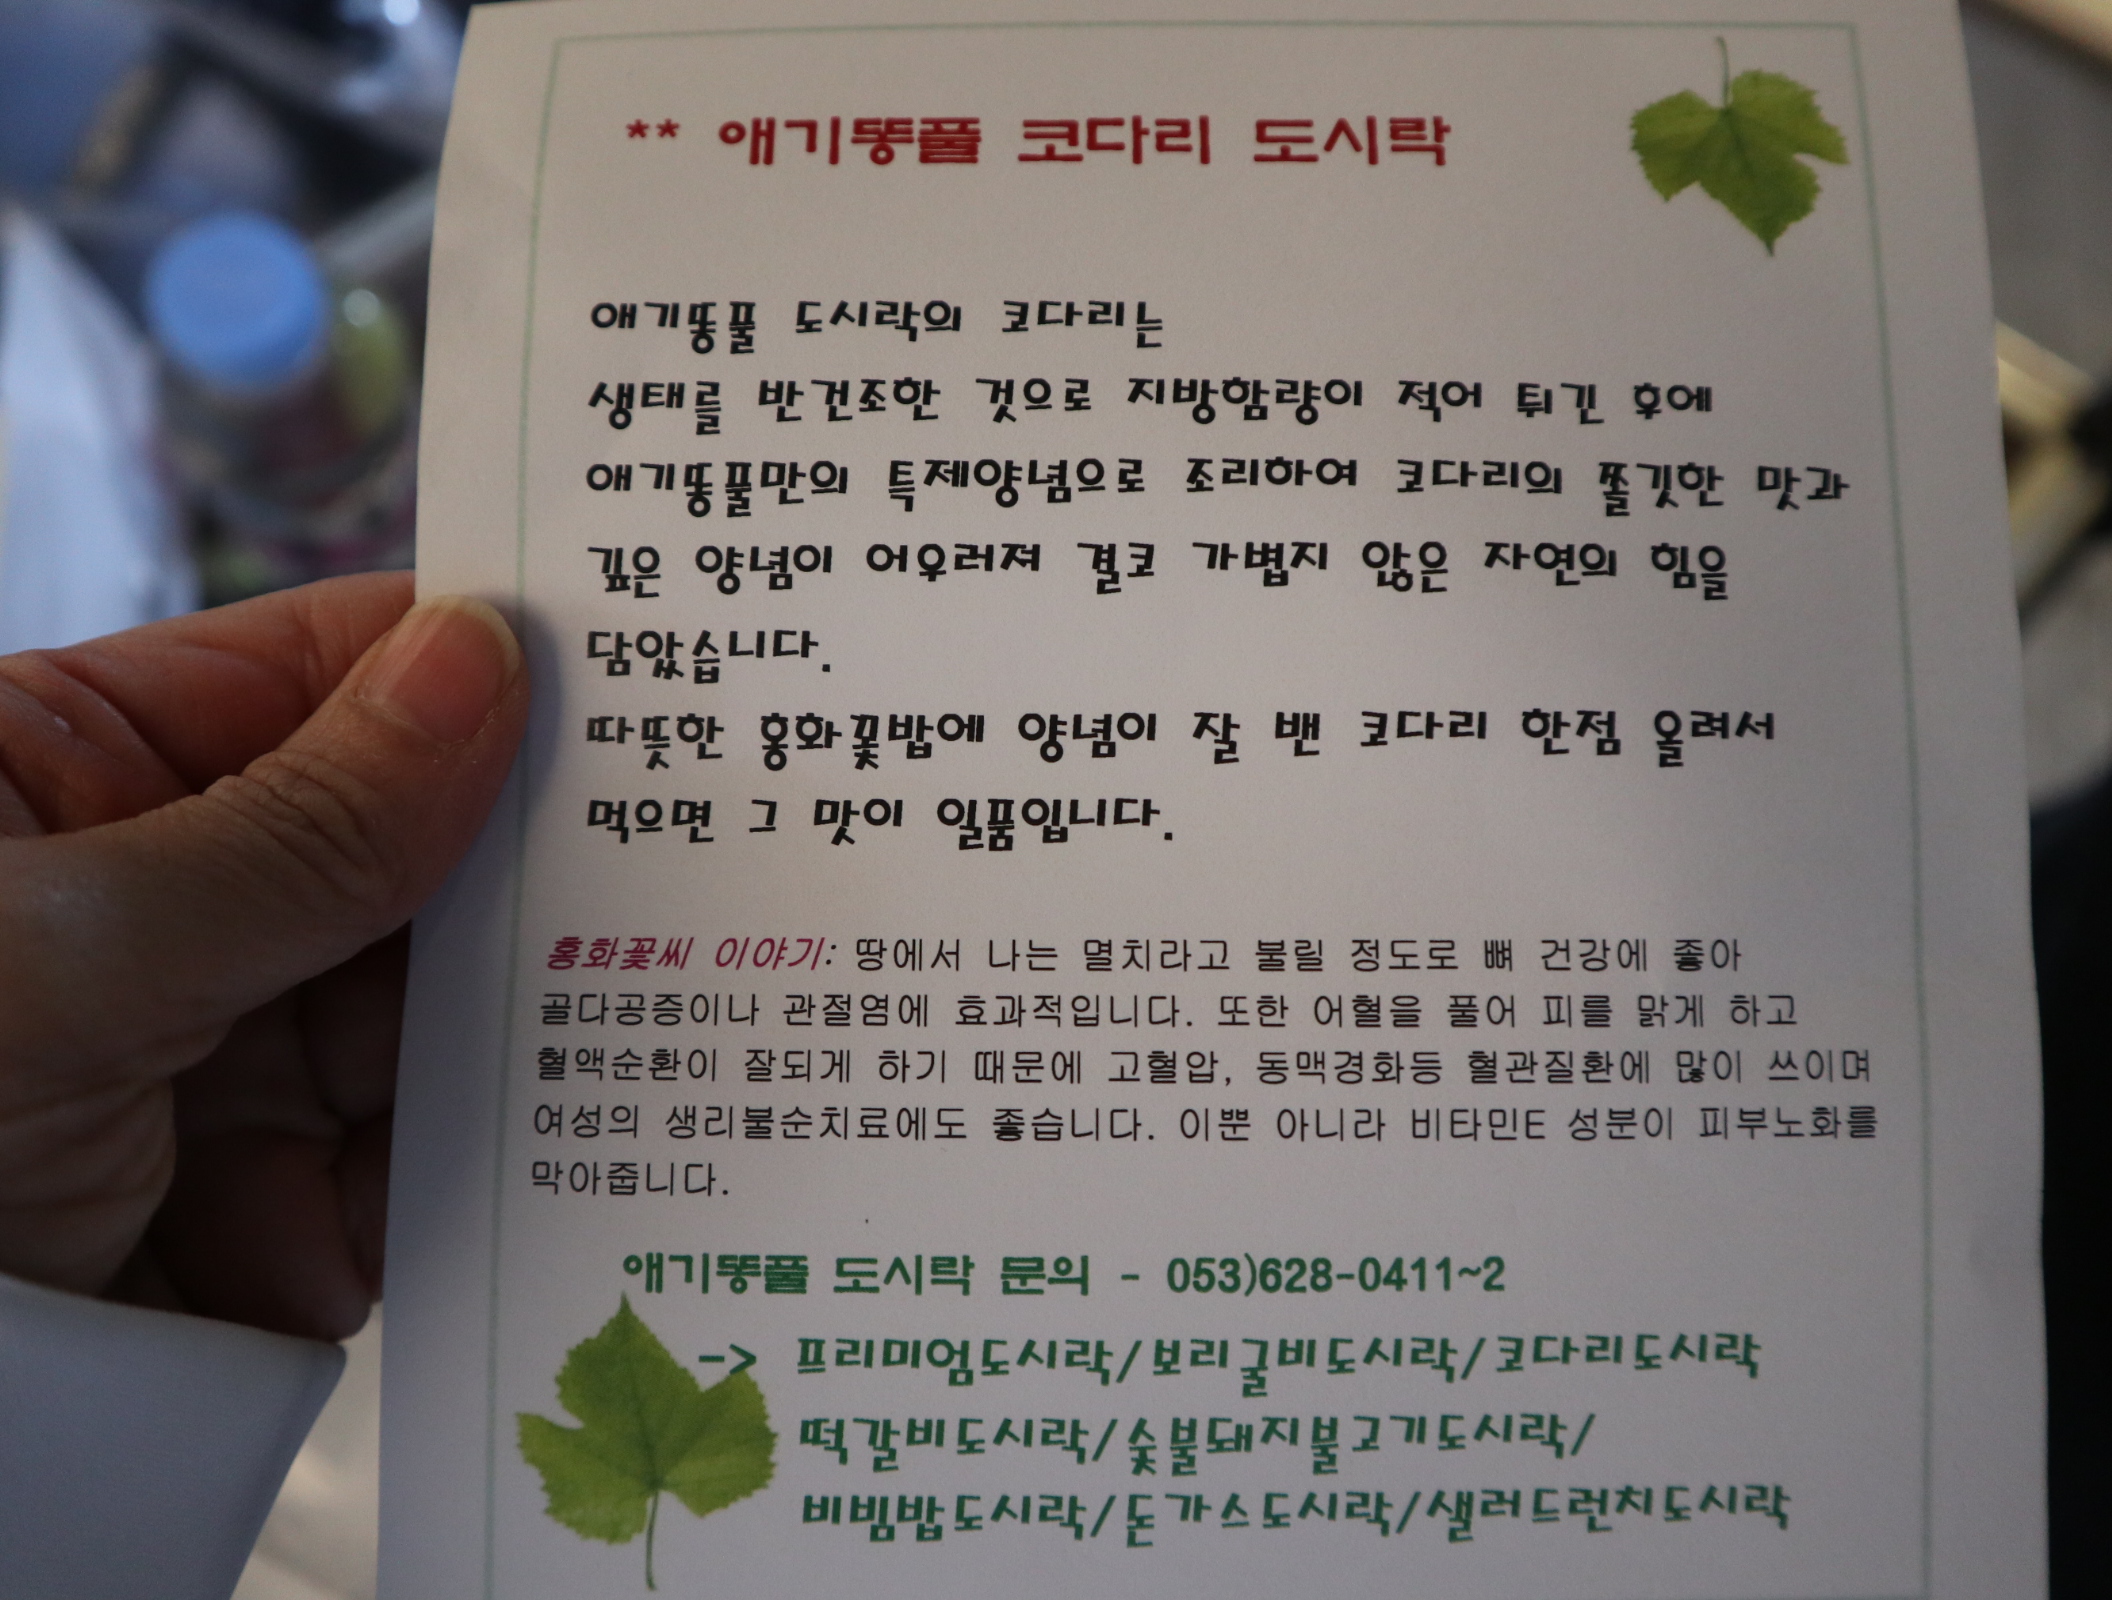 ** 애기똥풀 코다리 도시락
애기똥풀 도시락의 코다리는
생태를 반건조한 것으로 지방함량이 적어 튀긴 후에
애기똥풀만의 특제양념으로 조리하여 코다리의 쫄깃한 맛과
깊은 양념이 어우러져 결코 가볍지 않은 자연의 힘을
담았습니다.
따뜻한 홍화꽃밥에 양념이 잘 밴 코다리 한점 올려서
먹으면 그 맛이 일품입니다.
홍화꽃씨 이야기: 땅에서 나는 멸치라고 불릴 정도로 뼈 건강에 좋아
골다공증이나 관절염에 효과적입니다. 또한 어혈을 풀어 피를 맑게 하고
혈액순환이 잘되게 하기 때문에 고혈압, 동맥경화등 혈관질환에 많이 쓰이며
여성의 생리불순치료에도 좋습니다. 이뿐 아니라 비타민E 성분이 피부노화를
막아줍니다.
애기똥풀 도시락 문의 - 053)628-0411~2
-> 프리미엄도시락/보리굴비도시락/코다리도시락
떡갈비도시락/숯불돼지불고기도시락/
비빔밥도시락/돈가스도시락/샐러드런치도시락